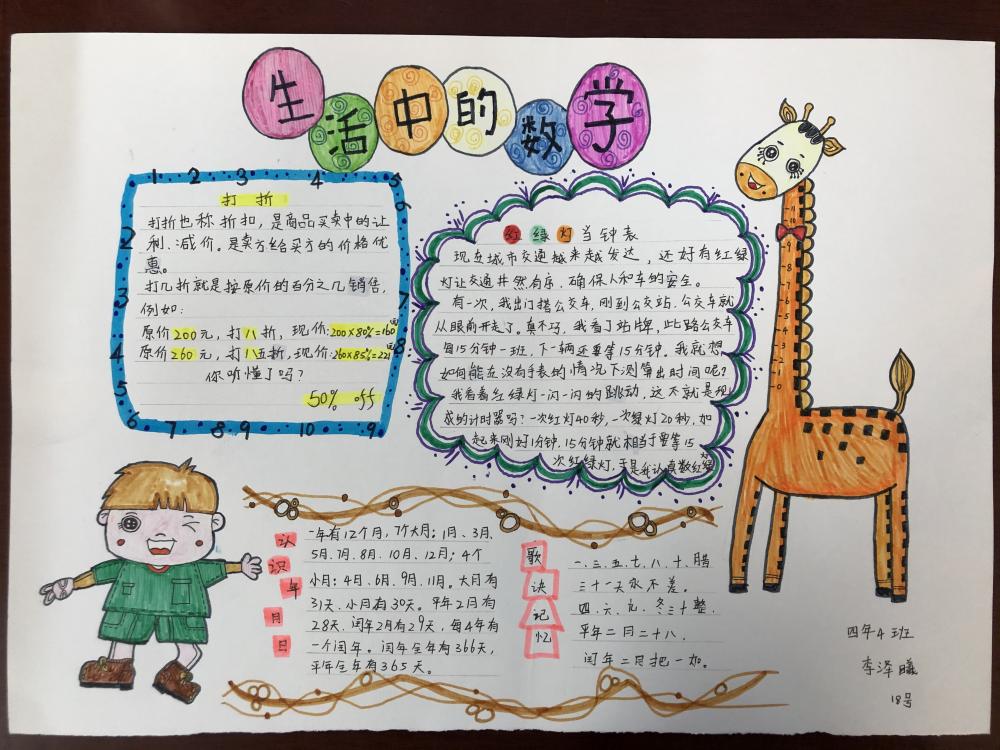 生活中的数学
1 2 3 4 5
6
2
3
7
4
8
5
6 7 8 9 10 9
打折
打折也称折扣，是商品买卖中的让
利、减价。是卖方给买方的价格优
惠。
打几折就是按原价的百分之几销售，
例如：
原价200元，打八折，现价：200×80%=160元
原价260元，打八五折，现价：260×85%=221元
你听懂了吗？
50% off
红绿灯当钟表
现在城市交通越来越发达，还好有红绿
灯让交通井然有序，确保人和车的安全。
有一次，我出门搭公交车，刚到公交站，公交车就
从眼前开走了。真不巧，我看了站牌，此路公交车
每15分钟一班，下一辆还要等15分钟。我就想
如何能在没有手表的情况下测算出时间呢？
我看着红绿灯一闪一闪的跳动，这不就是现
成的计时器吗？一次红灯40秒，一次绿灯20秒，加
起来刚好1分钟，15分钟就相当于要等15
次红绿灯，于是我认真数红绿
认识年月日
一年有12个月，7个大月：1月、3月、
5月、7月、8月、10月、12月；4个
小月：4月、6月、9月、11月。大月有
31天，小月有30天。平年2月有
28天，闰年2月有29天，每4年有
一个闰年。闰年全年有366天，
平年全年有365天。
歌诀记忆
一、三、五、七、八、十、腊
三十一天永不差。
四、六、九、冬三十整，
平年二月二十八，
闰年二月把一加。
9
8
7
6
5
4
3
2
1
0
四年4班
李泽
18号